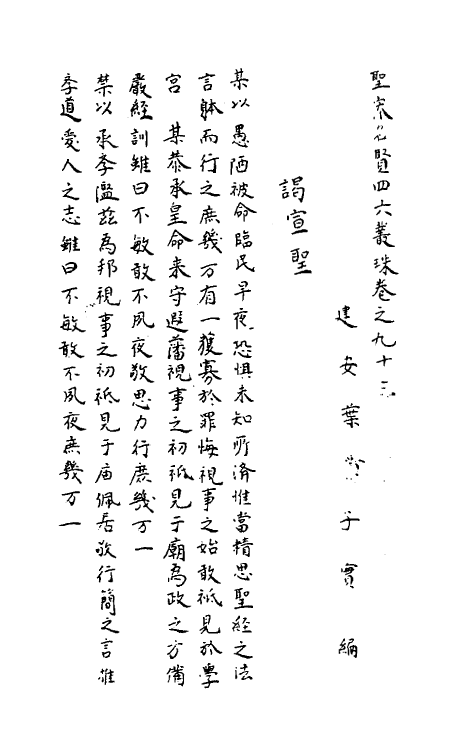 聖宋名賢四六叢珠卷之九十三
建安葉蕡子實編
謁宣聖
某以愚陋被命臨民早夜恐惧未知所済惟當精思聖經之法
言躰而行之庶幾万有一獲寡於罪悔視事之始敢祗見於學
宮　某恭承皇命来守遐藩視事之初祗見于廟為政之方備
嚴經訓雖曰不敏敢不夙夜敬思力行庶幾万一
禁以承李濫玆為邦視事之初祗見于庙佩居敬行簡之言推
李道愛人之志雖曰不敏敢不夙夜庶幾万一